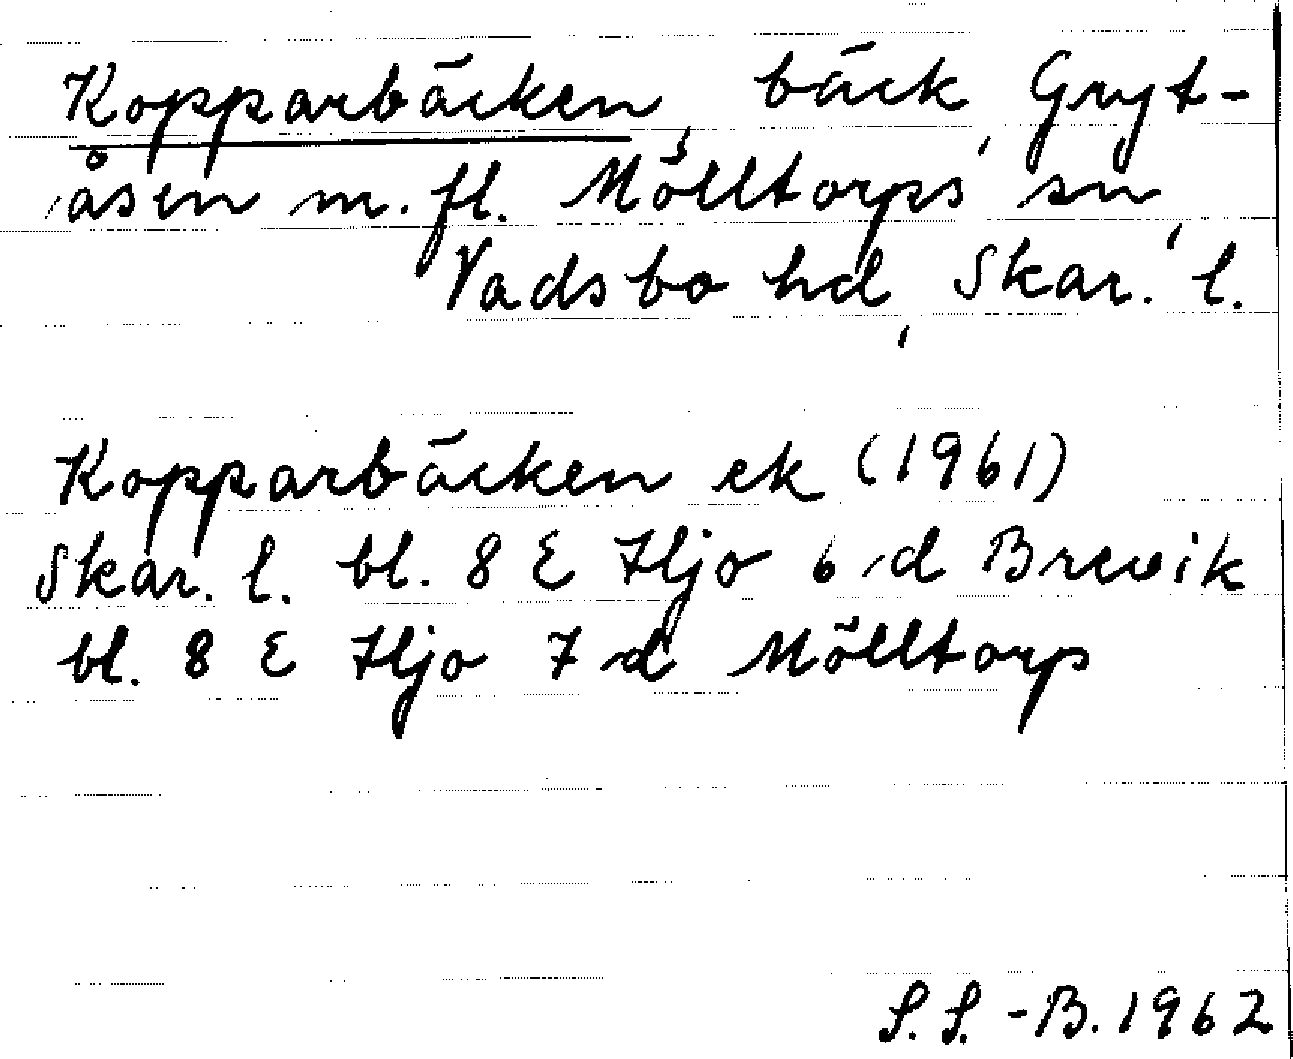 Kopparbäcken, bäck, Gryt-
åsen m. fl. Mölltorps sn,
Vadsbo hd, Skar. l.
Kopparbäcken ek (1961)
Skar. l. bl. 8 E Hjo 6 d Brevik
bl. 8 E Hjo 7 d Mölltorp
S. S. -B. 1962